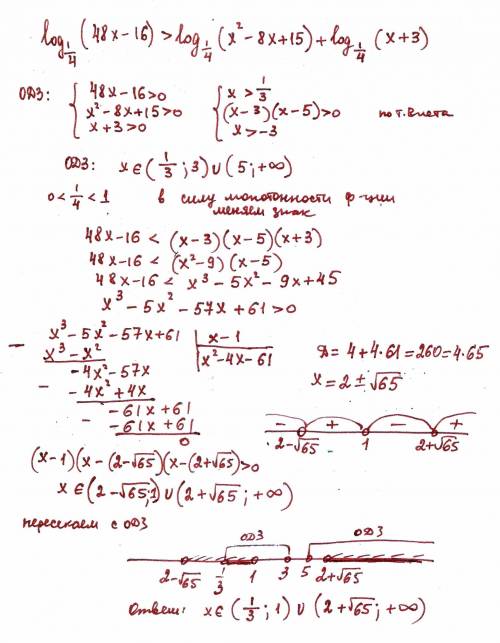 log_{1/4}(48x-16) > log_{1/4}(x²-8x+15) + log_{1/4}(x+3)
ОДЗ: { 48x-16>0 { x>1/3
x²-8x+15>0 (x-3)(x-5)>0 по т. Виета
x+3>0 x>-3
ОДЗ: x∈(1/3; 3)∪(5; +∞)
0<1/4<1 в силу монотонности ф-ции
меняем знак
48x-16 < (x-3)(x-5)(x+3)
48x-16 < (x²-9)(x-5)
48x-16 < x³-5x²-9x+45
x³-5x²-57x+61>0
- x³-5x²-57x+61 | x-1
x³-x² | x²-4x-61
- -4x²-57x
-4x²+4x
- -61x+61
-61x+61
0
Д=4+4·61=260=4·65
x=2±√65
- + - +
2-√65 1 2+√65
(x-1)(x-(2-√65)(x-(2+√65)>0
x∈(2-√65;1)∪(2+√65; +∞)
пересекаем с ОДЗ
ОДЗ ОДЗ
2-√65 1/3 1 3 5 2+√65
Ответ: x∈(1/3; 1)∪(2+√65; +∞)